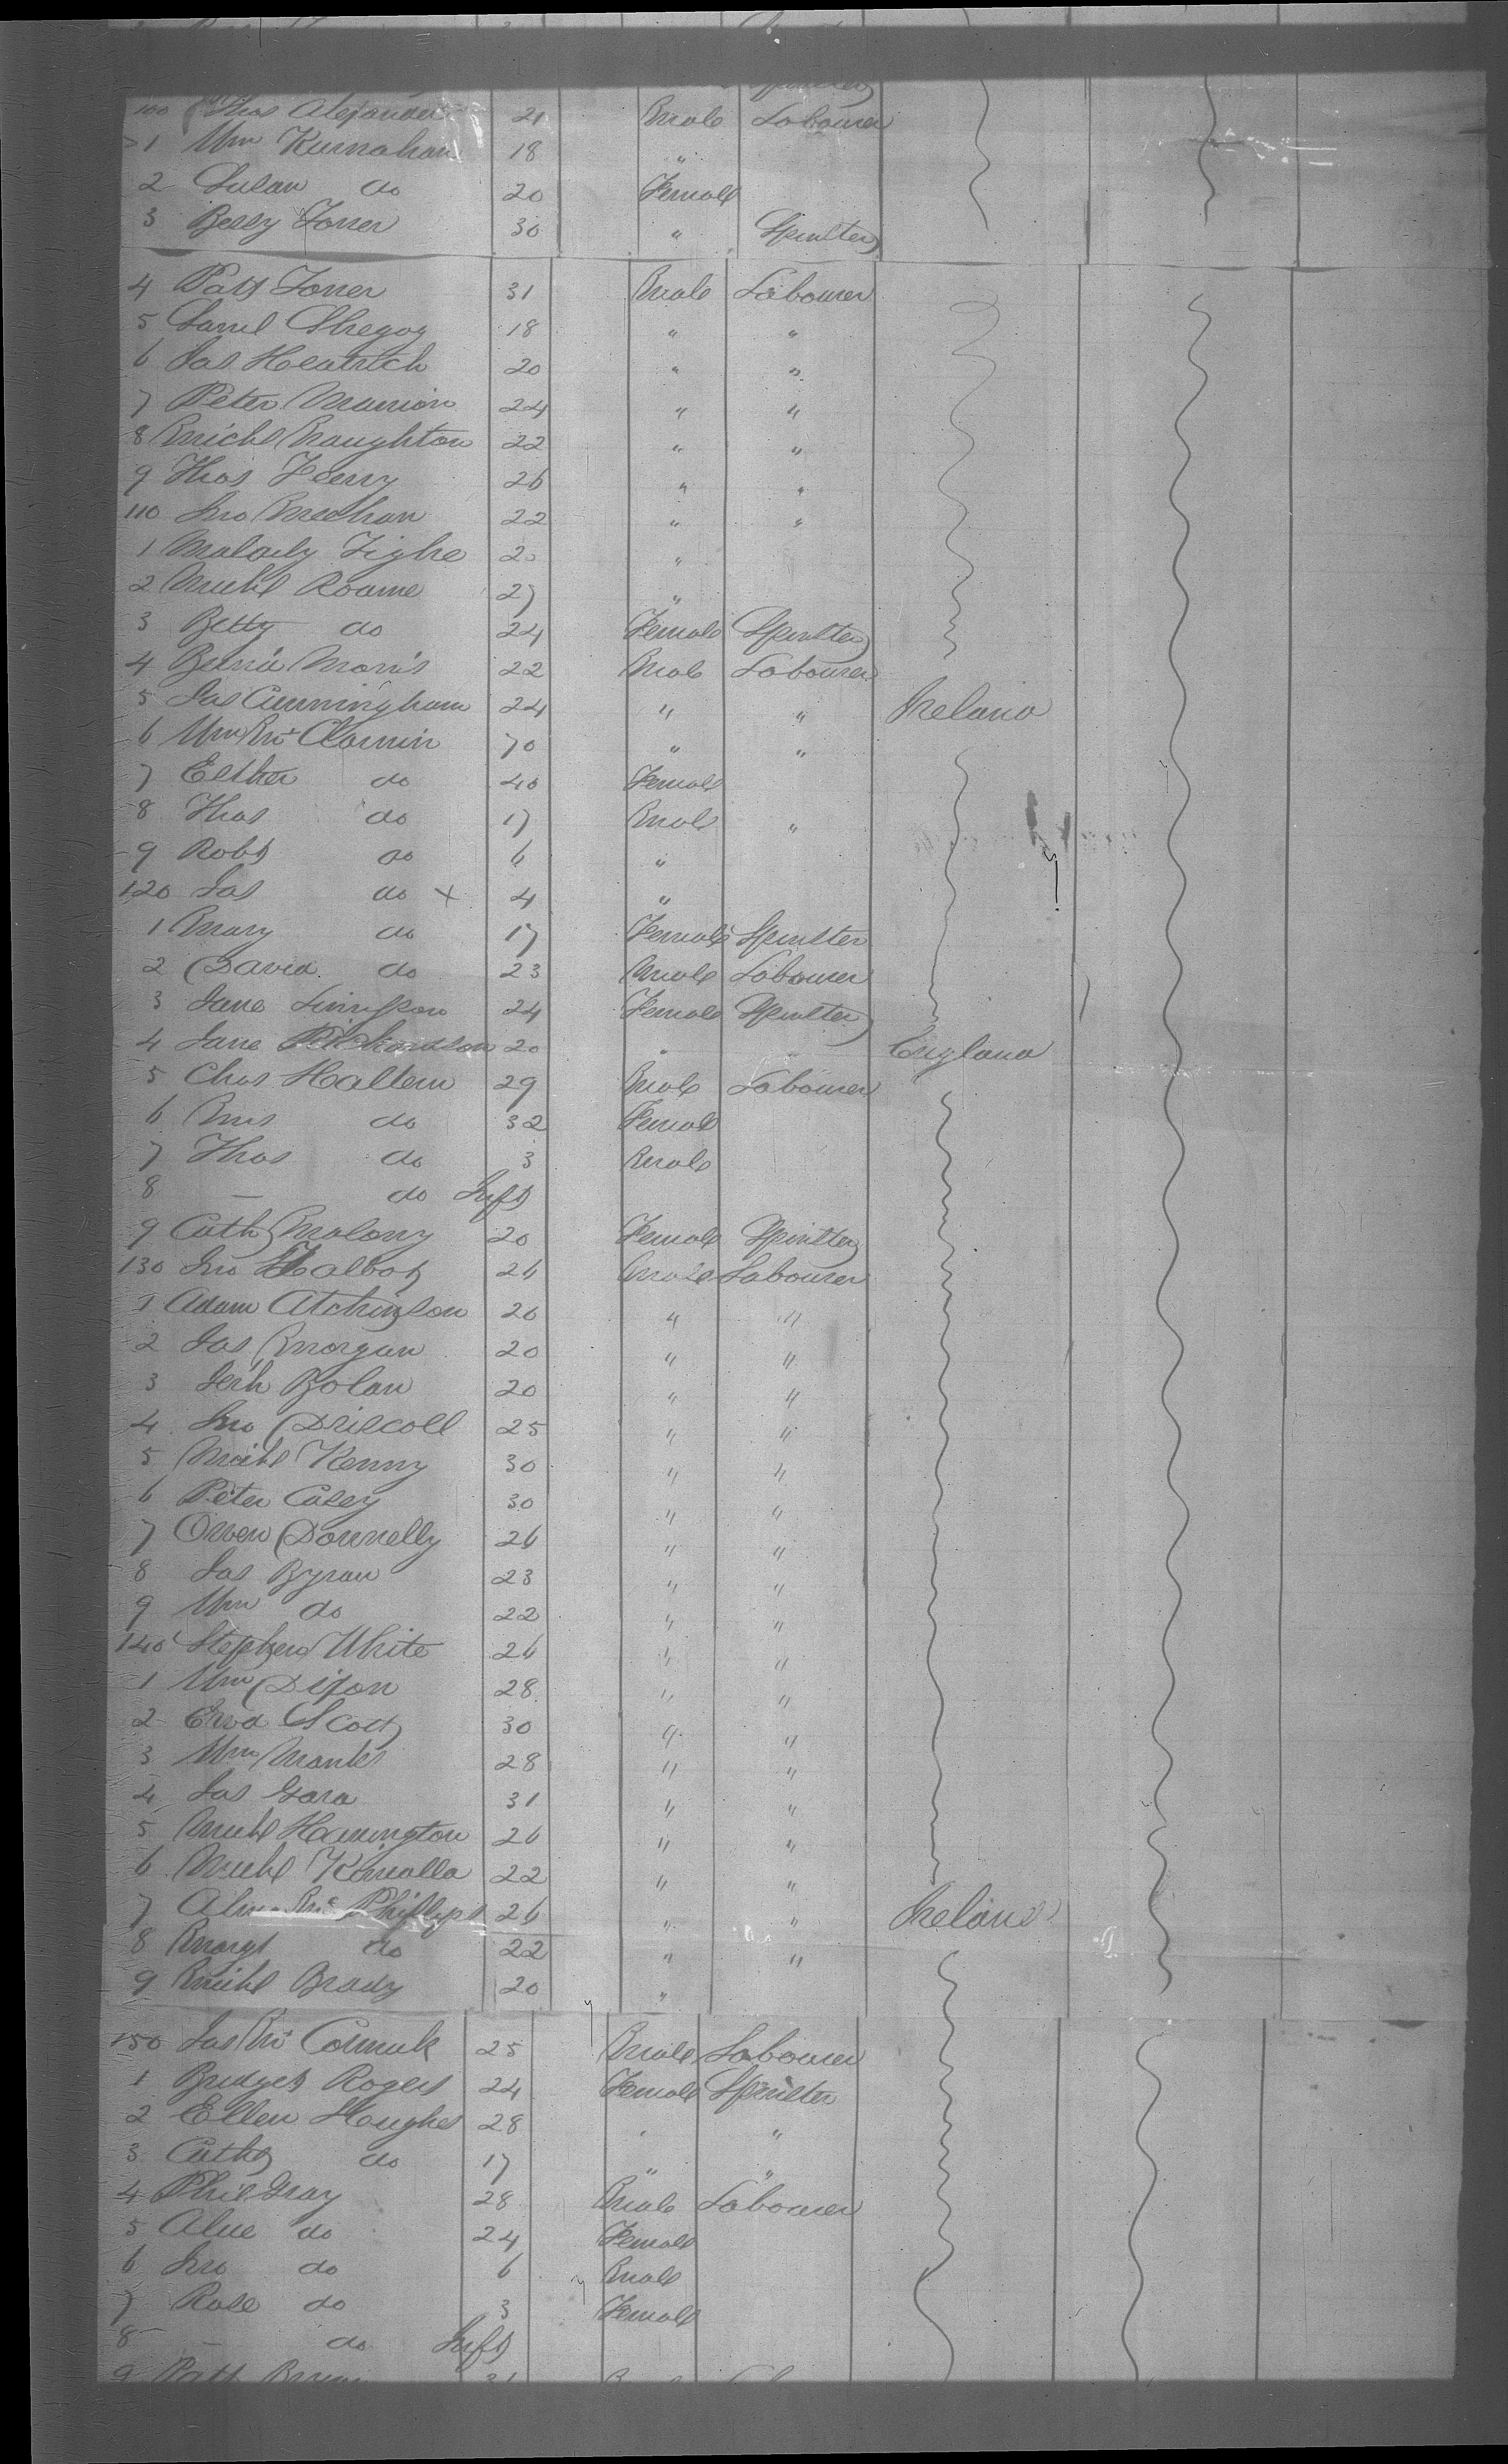 100 Thos Alexander 21 Male Labourer
1 Wm Kurnahan 18 "
2 Susan do 20 Female
3 Betsy Toner 30 " Spinster
4 Patt Toner 31 Male Labourer
5 Saml Shegog 18 " "
6 Jas Heatrich 20 " "
7 Peter Mannion 24 " "
8 Michl Naughton 22 " "
9 Thos Feeny 26 " "
110 Jno Meehan 22 " "
1 Malachy Tighe 20 "
2 Michl Roame 27 "
3 Betty do 24 Female Spinster
4 Morris 22 Male Labourer
5 Jas Cunningham 24 " " Ireland
6 Wm Mc Clamin 70 " "
7 Esther do 40 Female
8 Thos do 17 Male "
9 Robt do 6 "
120 Jas do x 4 "
1 Mary do 17 Female Spinster
2 David do 23 Male Labourer
3 Jane 24 Female Spinster
4 Jane Richardson 20 " " England
5 Chas Hallem 29 Male Labourer
6 Mrs do 32 Female
7 Thos do 3 Male
8 — do Inft
9 Cath Malony 20 Female Spinster
130 Jno Talbot 26 Male Labourer
1 Adam Atchinson 20 " "
2 Jas Morgan 20 " "
3 Jerh Bolan 20 " "
4 Jno Driscoll 25 " "
5 Michl Kenny 30 " "
6 Peter Casey 30 " "
7 Owen Donnelly 26 " "
8 Jas Byran 23 " "
9 Wm do 22 " "
140 Stephen White 26 " "
1 Wm Dixon 28 " "
2 Edwd Scott 30 " "
3 Wm Manks 28 " "
4 Jas Gara 31 " "
5 Michl Harrington 26 " "
6 Michl Kinealla 22 " "
7 Mc Phillips 26 " " Ireland
8 Margt do 22 " "
9 Michl Brady 20 "
150 Jas Mc Cormick 25 Male Labourer
1 Bridget Rogers 24 Female Spinster
2 Ellen Houghes 28 " "
3 Cath do 17 " "
4 Phil Gray 28 Male Labourer
5 Alice do 24 Female
6 Jno do 6 Male
7 Rose do 3 Female
8 — do Inft
9 Patt 31